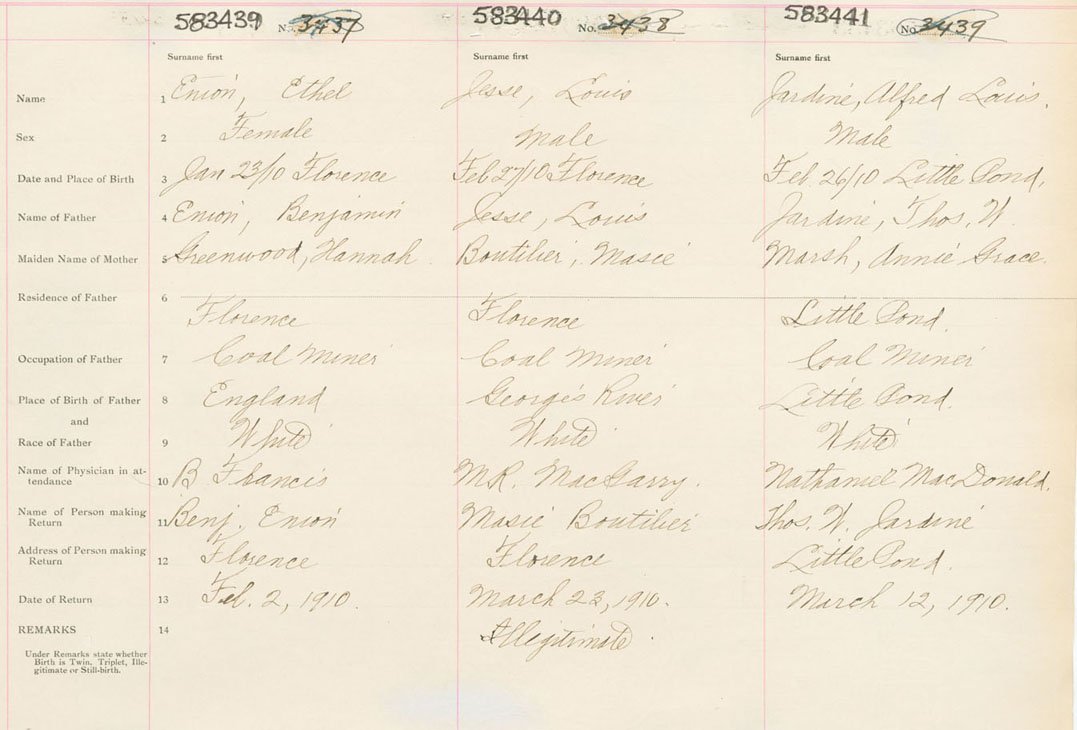 583439 No. 3437 583440 No. 3438 583441 No. 3439
Surname first Surname first Surname first
Name 1 Enion, Ethel Jesse, Louis Jardine, Alfred Louis.
Sex 2 Female Male Male
Date and Place of Birth 3 Jan 23/10 Florence Feb 27/10 Florence Feb. 26/10 Little Pond.
Name of Father 4 Enion, Benjamin Jesse, Louis Jardine, Thos. W.
Maiden Name of Mother 5 Greenwood, Hannah Boutilier, Masie Marsh, Annie Grace.
Residence of Father 6
Florence Florence Little Pond.
Occupation of Father 7 Coal Miner Coal Miner Coal Miner
Place of Birth of Father 8 England Georges River Little Pond.
and
Race of Father 9 White White White
Name of Physician in at-
tendance 10 B. Francis M.R. MacGarry. Nathaniel MacDonald.
Name of Person making
Return 11 Benj. Enion Masie Boutilier Thos. W. Jardine
Address of Person making
Return 12 Florence Florence Little Pond.
Date of Return 13 Feb. 2, 1910. March 23, 1910. March 12, 1910.
REMARKS 14 Illegitimate.
Under Remarks state whether
Birth is Twin. Triplet, Ille-
gitimate or Still-birth.